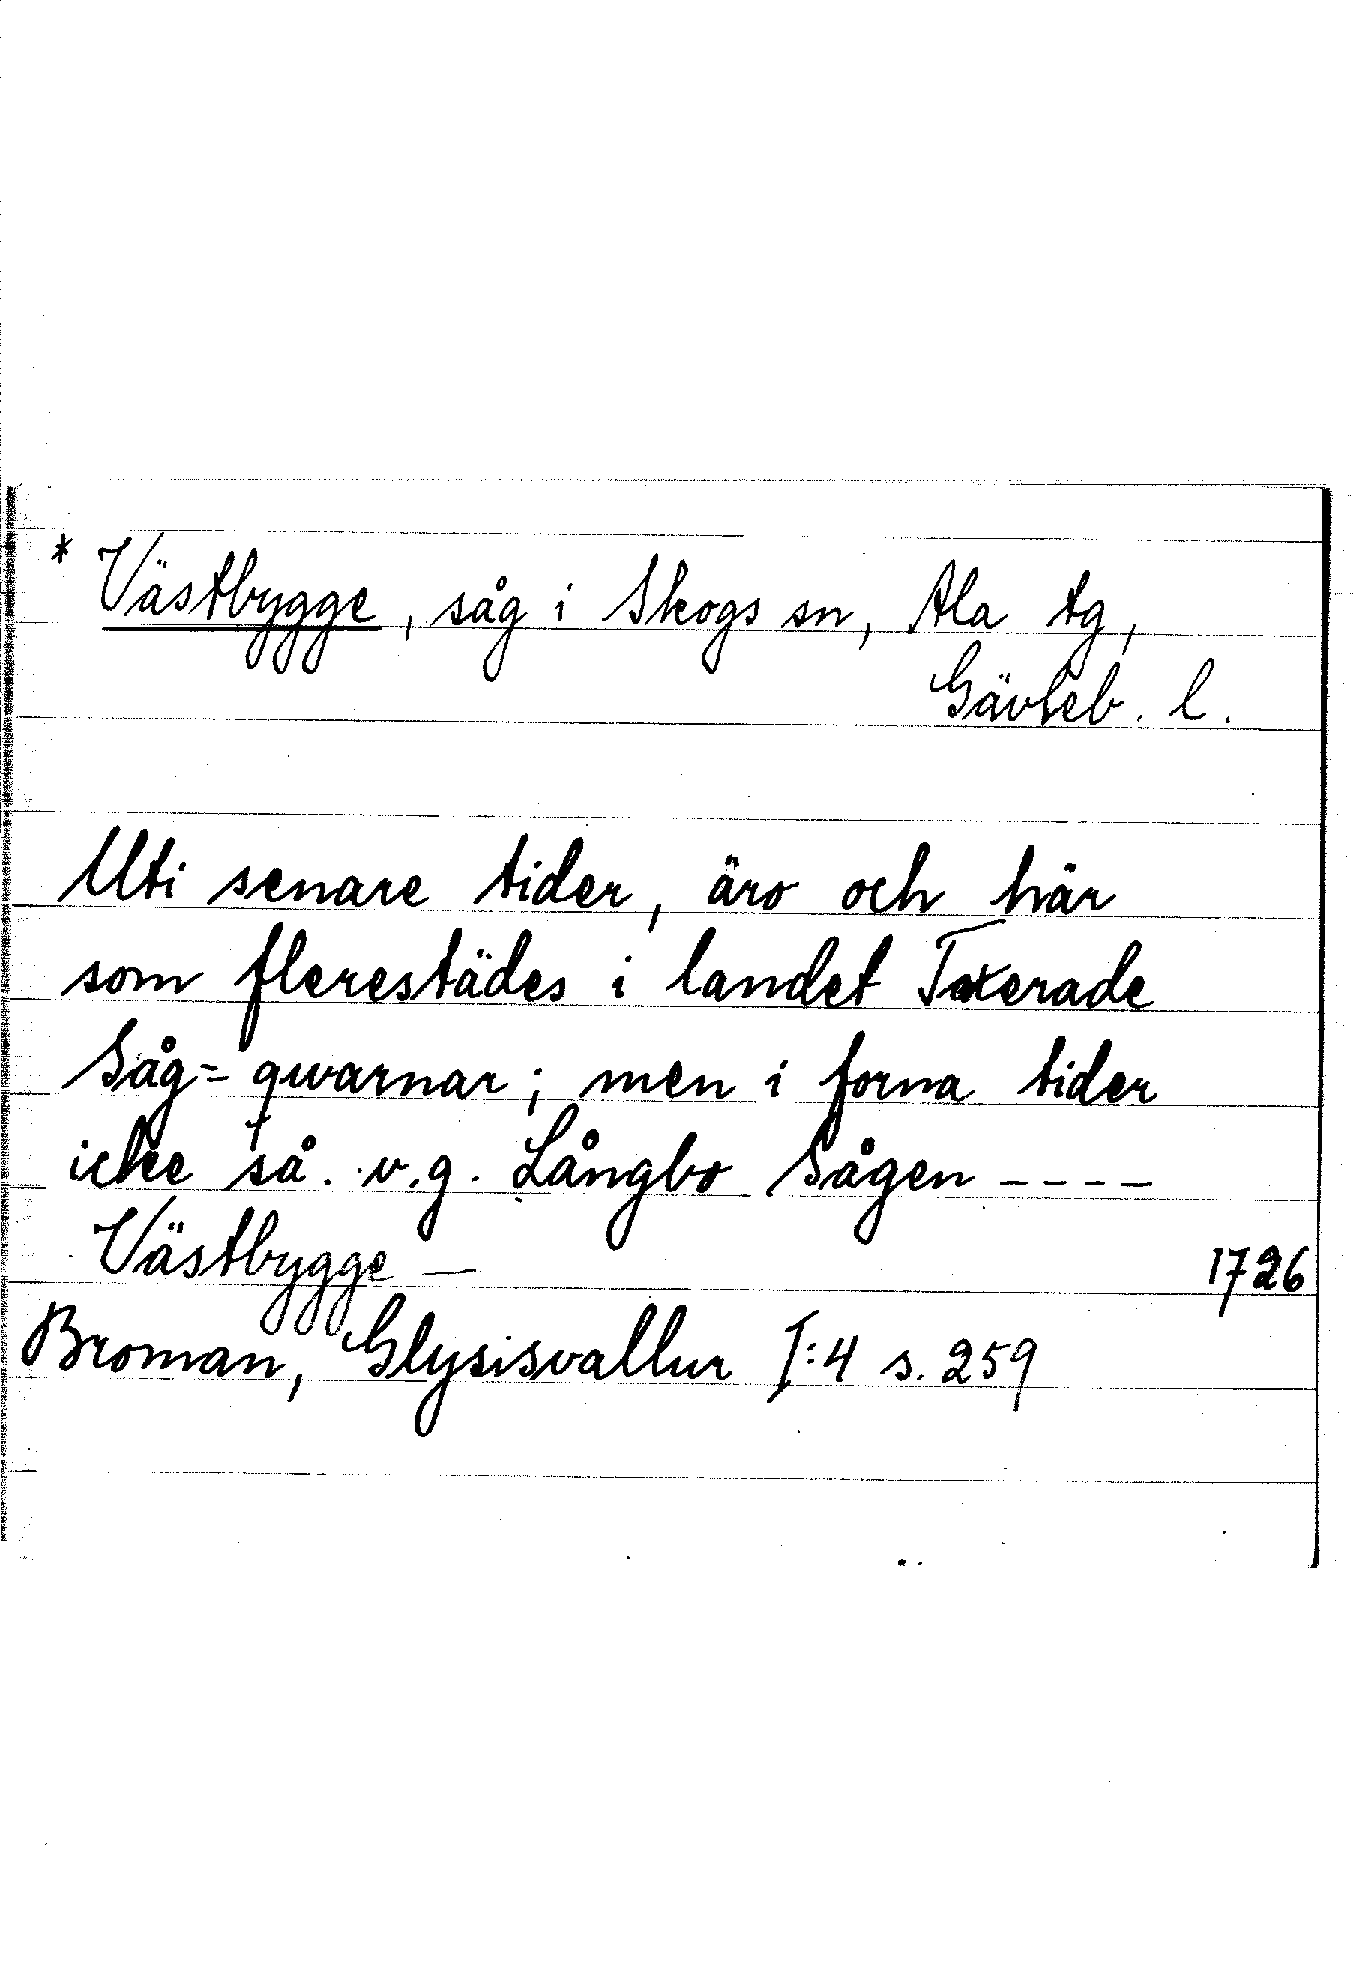 * Västbygge, såg i Skogs sn, Ala tg,
Gävleb. l.
Uti senare tider, äro och här
som flerestädes i landet Taxerade
Såg=qwarnar; men i forna tider
icke så. v.g. Långbo Sågen ----
Västbygge —
1726
Broman, Glysisvallur I:4 s. 259